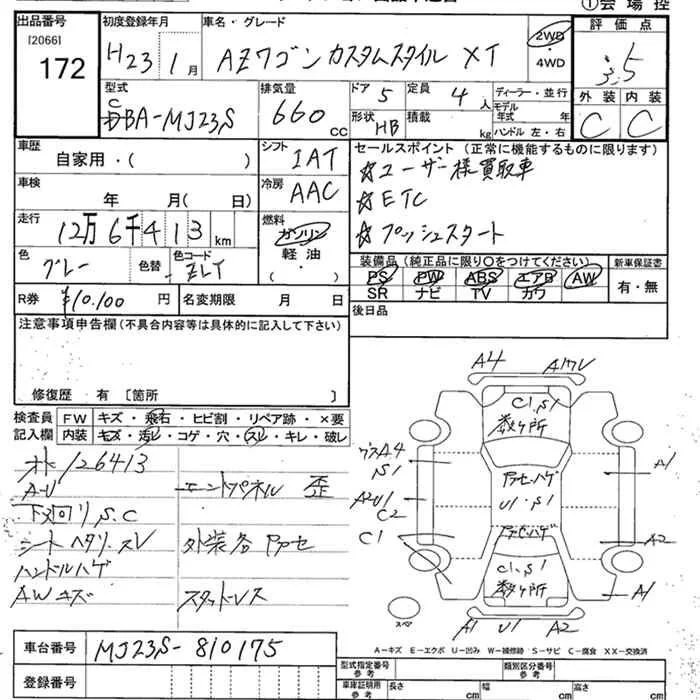 ①会場控
出品番号 初度登録年月 車名・グレード 評価点
[2066]
172 H23 1月 AZワゴン カスタムスタイル XT 2WD・4WD 3.5
型式 排気量 ドア 定員 ディーラー・並行 外装 内装
CBA-MJ23S 660 cc 5 4人 モデル年式 年 C C
形状 HB 積載 kg ハンドル 左・右
車歴 シフト セールスポイント (正常に機能するものに限ります)
自家用・( ) IAT ☆ユーザー様買取車
車検 冷房 ☆ETC
年 月( 日) AAC ☆プッシュスタート
走行 燃料
12万6千413 km ガソリン・軽油・( )
色 色替 色コード 装備品 (純正品に限り○をつけてください) 新車保証書
グレー ZLY PS PW ABS エアB AW 有・無
SR ナビ TV カワ
R券 ¥10,100円 名変期限 月 日 後日品
注意事項申告欄(不具合内容等は具体的に記入して下さい)
修復歴 有 〔箇所 〕
検査員 FW キズ・飛石・ヒビ割・リペア跡・×要
記入欄 内装 キズ・汚レ・コゲ・穴・スレ・キレ・破レ
126413
A-U エンドパネル 歪
下回り S.C
シートヘタリ.スレ 外装各 アセ
ハンドルハゲ
AWキズ スタッドレス
A4
C1.S1
数ヶ所
A4
S1
A1
U1.S1
A2U1
C2
C1
A2
C1.S1
数ヶ所
A1
スペア
A1 U1 A2
A-キズ E-エクボ U-凹み W-補修跡 S-サビ C-腐食 XX-交換済
車台番号 MJ23S-810175
型式指定番号 参考 類別区分番号 参考
登録番号
車庫証明用 参考 長さ cm 幅 cm 高さ cm